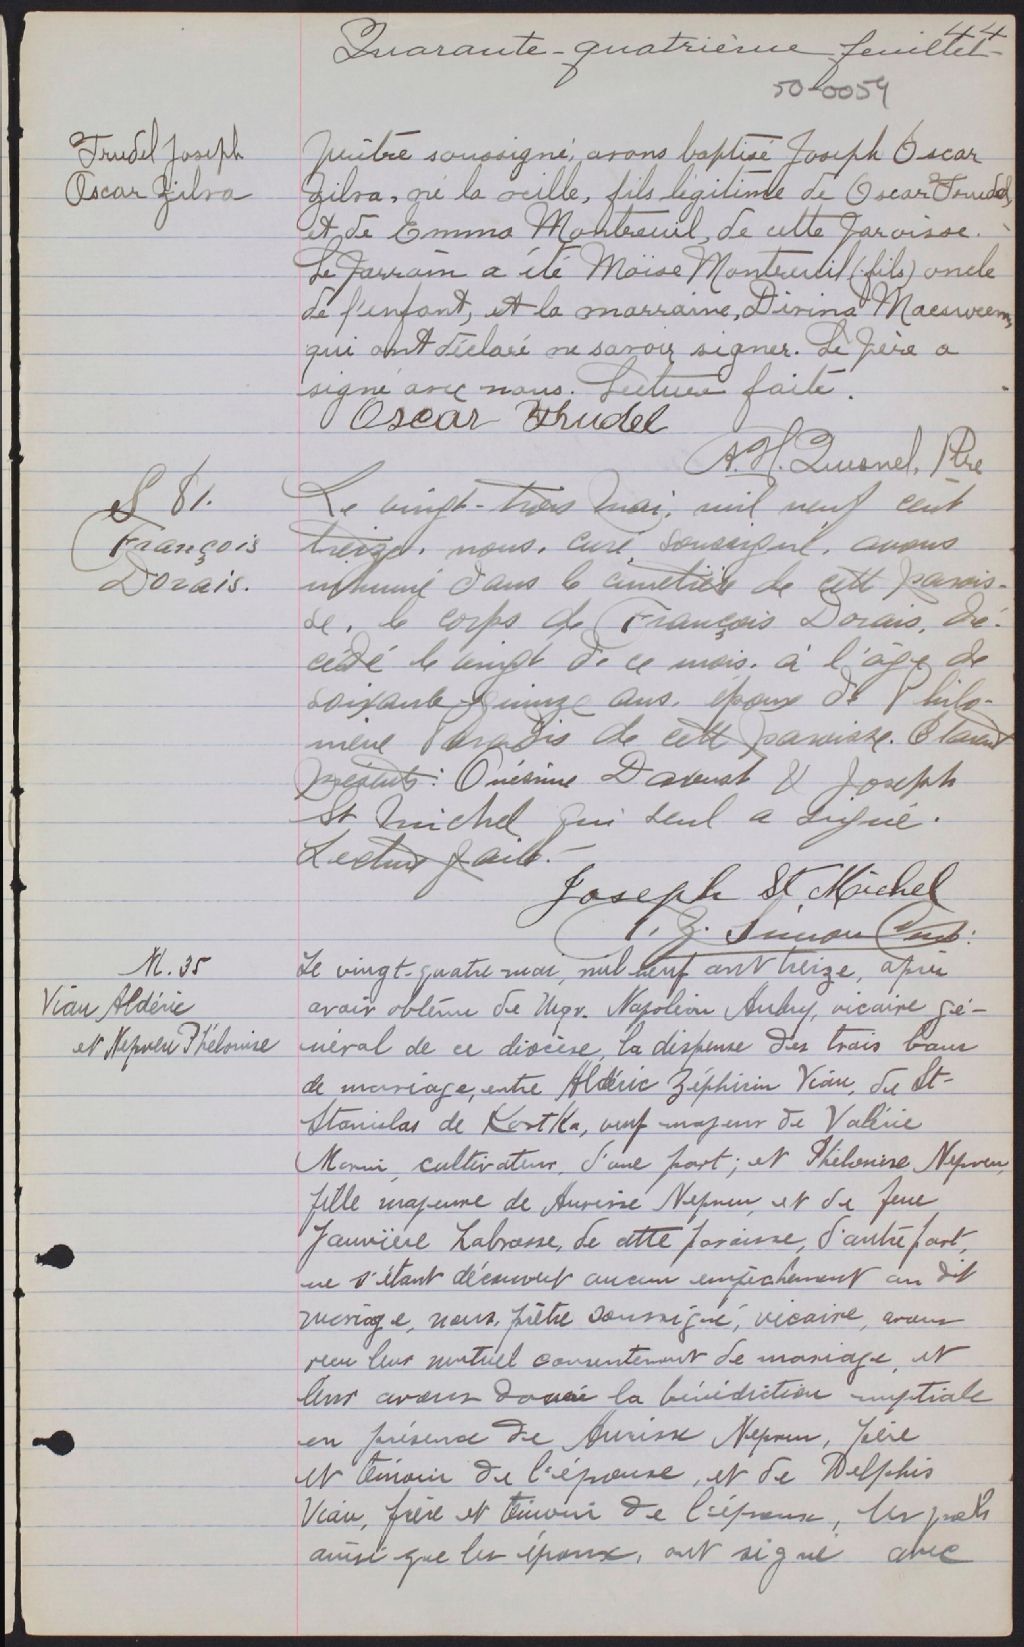 Quarante-quatrième feuillet
44
50-0059
Trudel Joseph
Oscar Zilva
prêtre soussigné, avons baptisé Joseph Oscar
Zilva, né la veille, fils légitime de Oscar Trudel
et de Emma Montreuil, de cette paroisse.
Le parrain a été Moïse Montreuil (fils) oncle
de l'enfant, et la marraine,
qui ont déclaré ne savoir signer. Le père a
signé avec nous. Lecture faite.
Oscar Trudel
A. H. Quesnel, Ptre
S 81.
François
Dorais.
Le vingt-trois Mai, mil neuf cent
treize, nous, curé soussigné, avons
inhumé dans le cimetière de cett parois-
se, le corps de François Dorais, dé-
cédé le vingt de ce mois, à l'âge de
soixante-quinze ans, époux de Philo-
mène de cett paroisse. Etaient
présents: Onésime Daoust & Joseph
St Michel qui seul a signé.
Lecture faite.-
Joseph St. Michel
M. 35
Viau Aldéric
et Nepveu Phélonise
Le vingt-quatre mai, mil neuf cent treize, après
avoir obtenu de Mgr. Napoléon Aubry, vicaire gé-
néral de ce diocèse, la dispense des trois bans
de mariage, entre Aldéric Zéphirin Viau, de St-
Stanislas de Kostka, veuf majeur de Valérie
Morin, cultivateur, d'une part; et Phélonise Nepveu,
fille majeure de Aurisse Nepveu, et de feue
Janvière Labrosse, de cette paroisse, d'autre part,
ne s'étant découvert aucun empêchement au dit
mariage, nous, prêtre soussigné, vicaire, avons
reçu leur mutuel consentement de mariage, et
leur avons donné la bénédiction nuptiale
en présence de Aurisse Nepveu, père
et témoin de l'épouse, et de Delphis
Viau, frère et témoin de l'époux, lesquels
ainsi que les époux, ont signé avec